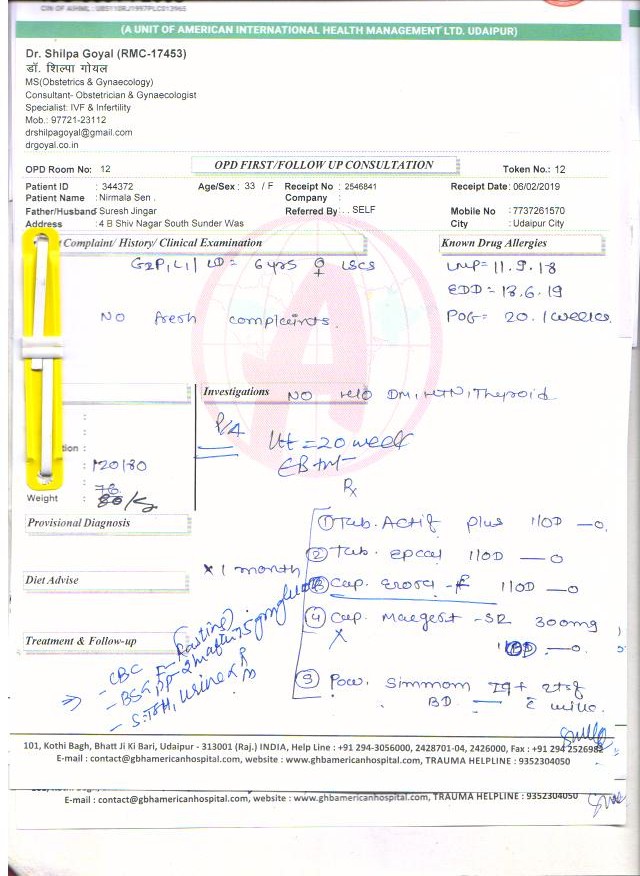 (A UNIT OF AMERICAN INTERNATIONAL HEALTH MANAGEMENT LTD. UDAIPUR)
Dr. Shilpa Goyal (RMC-17453)
डॉ. शिल्पा गोयल
MS(Obstetrics & Gynaecology)
Consultant- Obstetrician & Gynaecologist
Specialist: IVF & Infertility
Mob.: 97721-23112
drshilpagoyal@gmail.com
drgoyal.co.in
OPD Room No: 12 OPD FIRST/FOLLOW UP CONSULTATION Token No.: 12
Patient ID : 344372 Age/Sex : 33 / F Receipt No : 2546841 Receipt Date: 06/02/2019
Patient Name : Nirmala Sen . Company :
Father/Husband Suresh Jingar Referred By : . . SELF Mobile No : 7737261570
Address : 4 B Shiv Nagar South Sunder Was City : Udaipur City
Complaint/ History/ Clinical Examination Known Drug Allergies
G2P1L1 LD= 6yrs ♀ LSCS LMP= 11.9.18
EDD= 18.6.19
No fresh complaints. POG= 20.1 weeks
Investigations NO H/O DM, HTN, Thyroid
P/A Ut = 20 week
Rx
: 120/80
78
Weight 80 kg
① Tab. Actif plus 1 OD —o.
Provisional Diagnosis
② Tab. epcal 1 OD —o
x 1 month
③ Cap. -F 1 OD —o
Diet Advise
④ Cap. -SR 300mg
x OD —o.
Treatment & Follow-up
- CBC
- BSG F- (Fasting) PP-2h after 75gm
- S.TSH, urine
⑤ Pow. Simmom
BD — c milk.
101, Kothi Bagh, Bhatt Ji Ki Bari, Udaipur - 313001 (Raj.) INDIA, Help Line : +91 294-3056000, 2428701-04, 2426000, Fax : +91 294 2526982
E-mail : contact@gbhamericanhospital.com, website : www.gbhamericanhospital.com, TRAUMA HELPLINE : 9352304050
E-mail : contact@gbhamericanhospital.com, website : www.gbhamericanhospital.com, TRAUMA HELPLINE : 9352304050